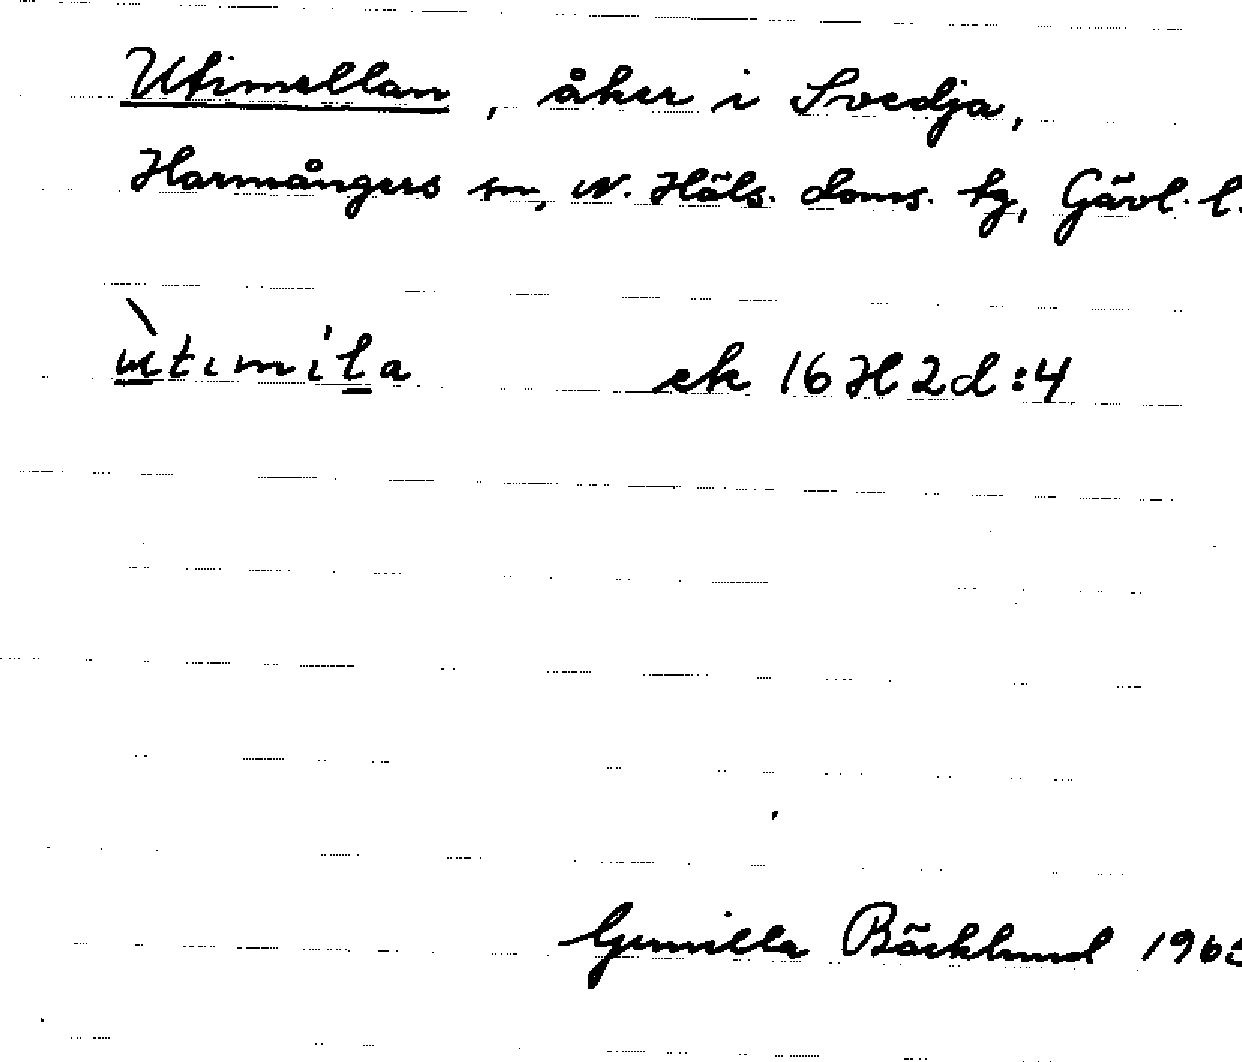 Utimellan, åker i Svedja,
Harmångers sn, N. Häls. doms. tg, Gävl. l.
ùtımíla ek 16H2d:4
Gunilla Bäcklund 196